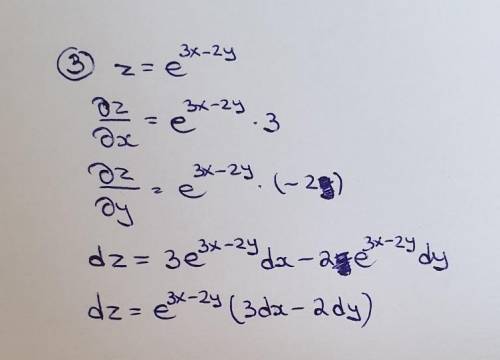 ③ z = e^{3x-2y}
∂z/∂x = e^{3x-2y} · 3
∂z/∂y = e^{3x-2y} · (-2)
dz = 3e^{3x-2y} dx - 2e^{3x-2y} dy
dz = e^{3x-2y} (3dx - 2dy)